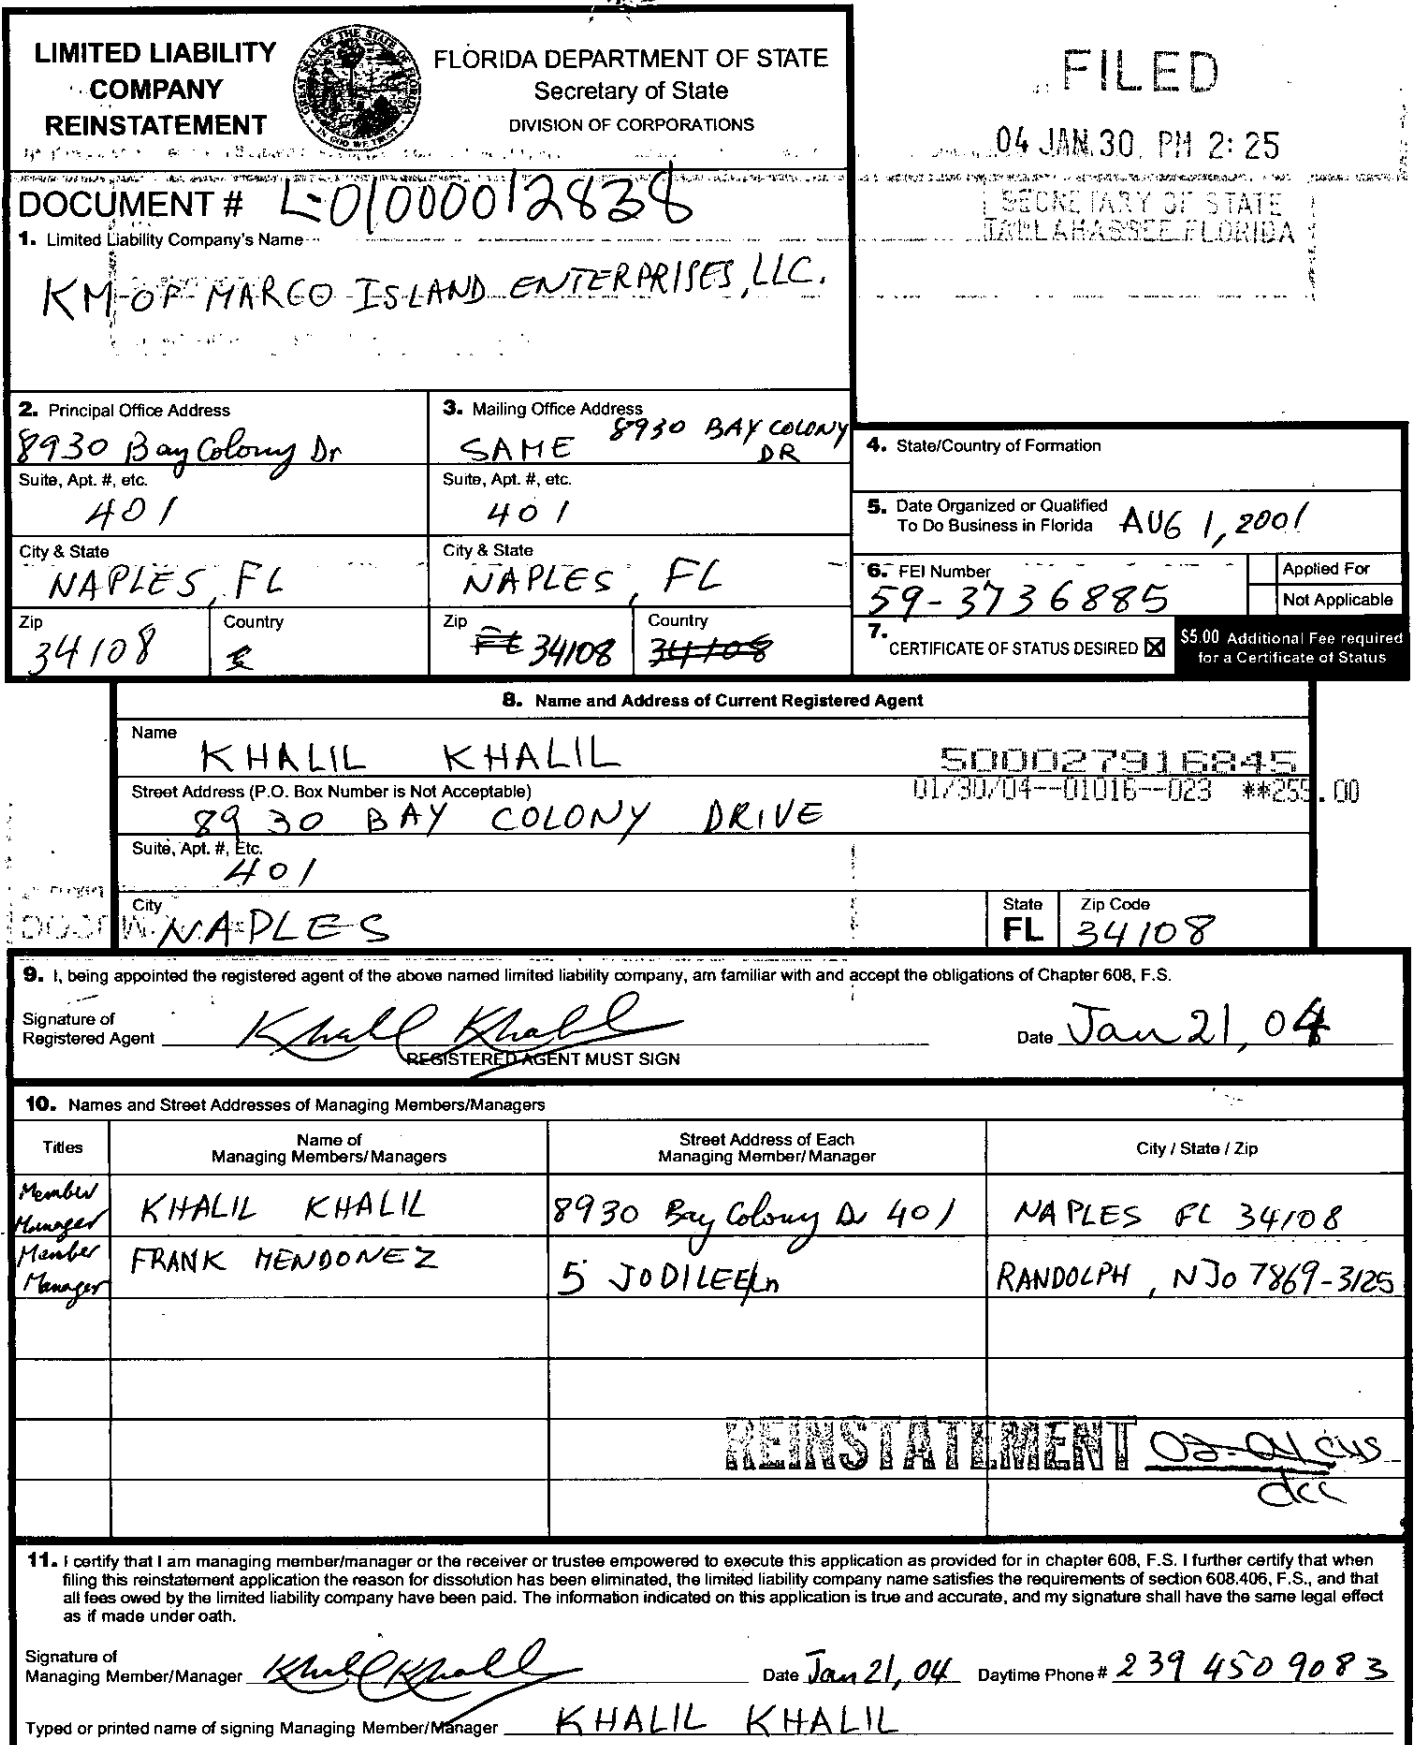 LIMITED LIABILITY
COMPANY
REINSTATEMENT
FLORIDA DEPARTMENT OF STATE
Secretary of State
DIVISION OF CORPORATIONS
FILED
04 JAN 30 PM 2:25
SECRETARY OF STATE
TALLAHASSEE FLORIDA
DOCUMENT # L-01000012838
1. Limited Liability Company's Name
KM OF MARCO ISLAND ENTERPRISES, LLC.
2. Principal Office Address
8930 Bay Colony Dr
3. Mailing Office Address
SAME 8930 BAY COLONY
DR
4. State/Country of Formation
Suite, Apt. #, etc.
401
Suite, Apt. #, etc.
401
5. Date Organized or Qualified
To Do Business in Florida AUG 1, 2001
City & State
NAPLES, FL
City & State
NAPLES, FL
6. FEI Number
59-3736885
Applied For
Not Applicable
Zip
34108
Country
Zip
FL 34108
Country
34108
7. CERTIFICATE OF STATUS DESIRED ☒
$5.00 Additional Fee required
for a Certificate of Status
8. Name and Address of Current Registered Agent
Name
KHALIL KHALIL
500027916845
01/30/04--01016--023 **255.00
Street Address (P.O. Box Number is Not Acceptable)
8930 BAY COLONY DRIVE
Suite, Apt. #, Etc.
401
City
NAPLES
State
FL
Zip Code
34108
9. I, being appointed the registered agent of the above named limited liability company, am familiar with and accept the obligations of Chapter 608, F.S.
Signature of
Registered Agent Khalil Khalil
REGISTERED AGENT MUST SIGN
Date Jan 21, 04
10. Names and Street Addresses of Managing Members/Managers
Titles
Name of
Managing Members/Managers
Street Address of Each
Managing Member/Manager
City / State / Zip
Member
Manager
KHALIL KHALIL
8930 Bay Colony Dr 401
NAPLES FL 34108
Member
Manager
FRANK MENDONEZ
5 JODILEE Ln
RANDOLPH, NJ 07869-3125
REINSTATEMENT 02-04 cus
dcc
11. I certify that I am managing member/manager or the receiver or trustee empowered to execute this application as provided for in chapter 608, F.S. I further certify that when
filing this reinstatement application the reason for dissolution has been eliminated, the limited liability company name satisfies the requirements of section 608.406, F.S., and that
all fees owed by the limited liability company have been paid. The information indicated on this application is true and accurate, and my signature shall have the same legal effect
as if made under oath.
Signature of
Managing Member/Manager Khalil Khalil
Date Jan 21, 04 Daytime Phone # 239 450 9083
Typed or printed name of signing Managing Member/Manager KHALIL KHALIL